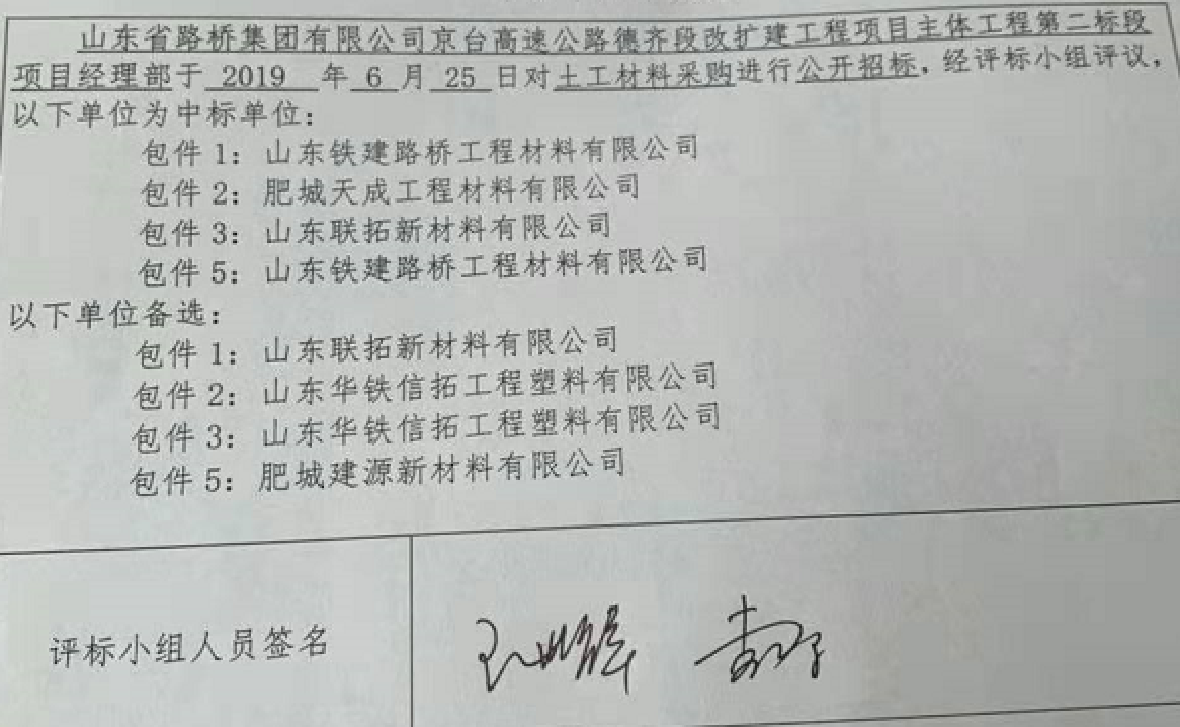 山东省路桥集团有限公司京台高速公路德齐段改扩建工程项目主体工程第二标段
项目经理部于 2019 年 6 月 25 日对土工材料采购进行公开招标，经评标小组评议，
以下单位为中标单位：
包件 1：山东铁建路桥工程材料有限公司
包件 2：肥城天成工程材料有限公司
包件 3：山东联拓新材料有限公司
包件 5：山东铁建路桥工程材料有限公司
以下单位备选：
包件 1：山东联拓新材料有限公司
包件 2：山东华铁信拓工程塑料有限公司
包件 3：山东华铁信拓工程塑料有限公司
包件 5：肥城建源新材料有限公司
评标小组人员签名